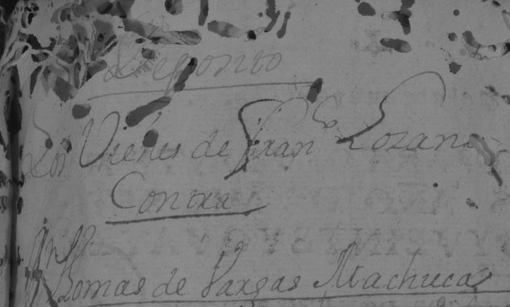 Deposito
Los Vienes de Fran.co Lozano
Contra
Thomas de Vargas Machuca